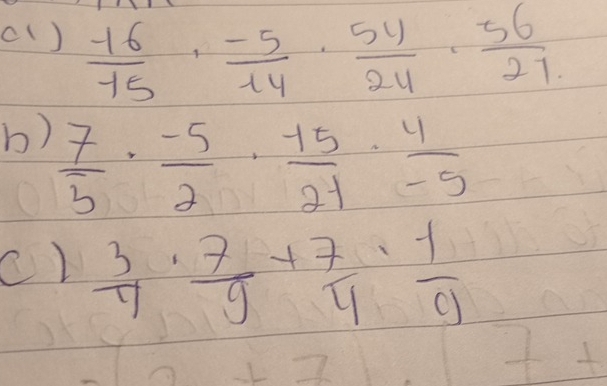 a) \frac{-16}{15} \cdot \frac{-5}{14} \cdot \frac{54}{24} \cdot \frac{56}{21}.
b) \frac{7}{3} \cdot \frac{-5}{2} \cdot \frac{15}{21} \cdot \frac{4}{-5}
c) \frac{3}{4} \cdot \frac{7}{9} + \frac{7}{4} \cdot \frac{1}{9}